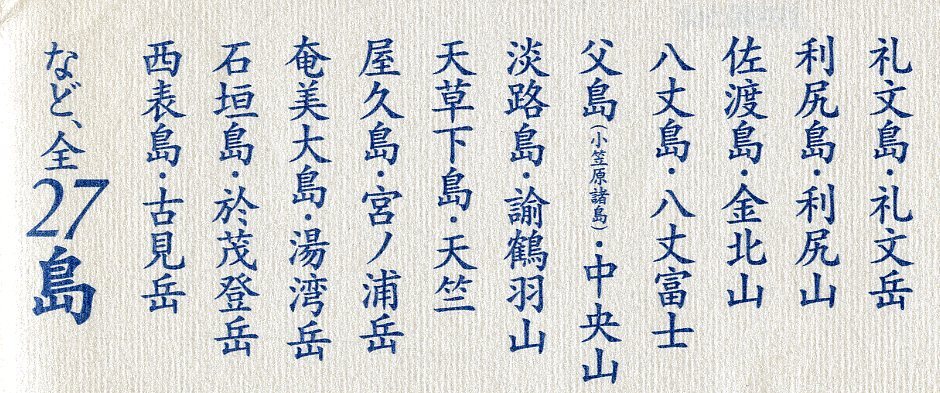 礼文島・礼文岳
利尻島・利尻山
佐渡島・金北山
八丈島・八丈富士
父島（小笠原諸島）・中央山
淡路島・諭鶴羽山
天草下島・天竺
屋久島・宮ノ浦岳
奄美大島・湯湾岳
石垣島・於茂登岳
西表島・古見岳
など、全27島